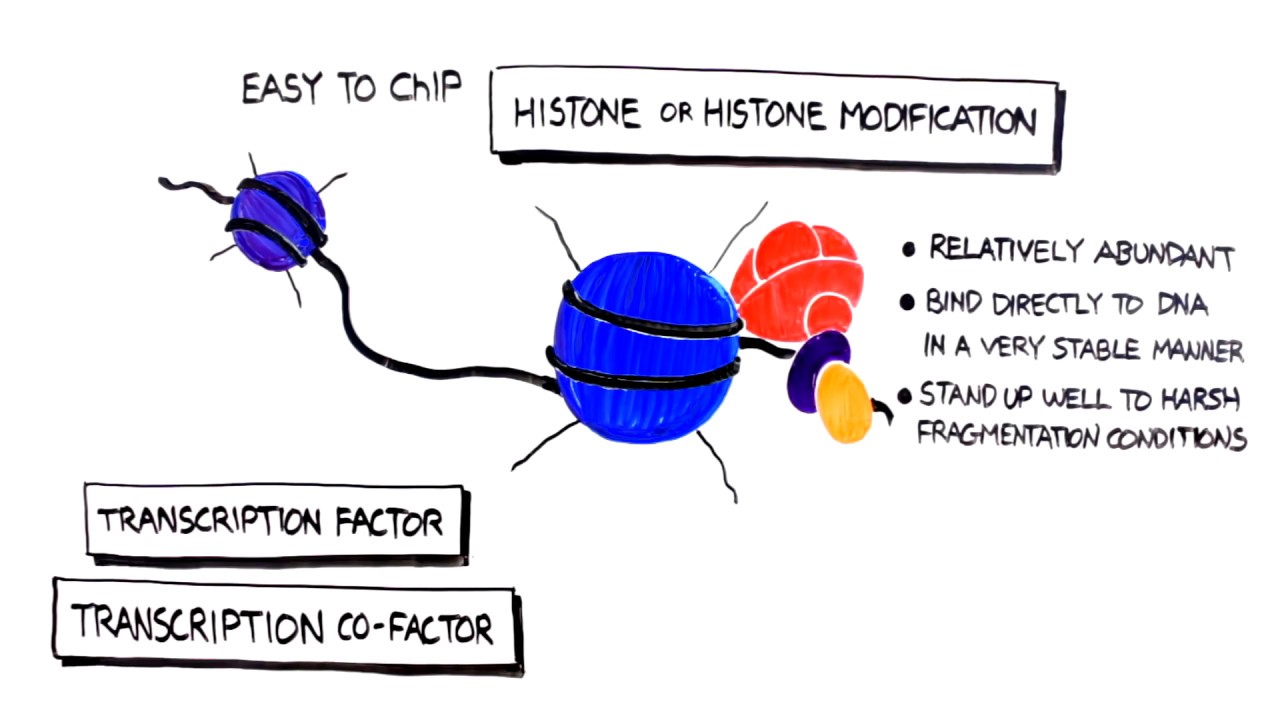 EASY TO ChIP
HISTONE OR HISTONE MODIFICATION
• RELATIVELY ABUNDANT
• BIND DIRECTLY TO DNA
IN A VERY STABLE MANNER
• STAND UP WELL TO HARSH
FRAGMENTATION CONDITIONS
TRANSCRIPTION FACTOR
TRANSCRIPTION CO-FACTOR